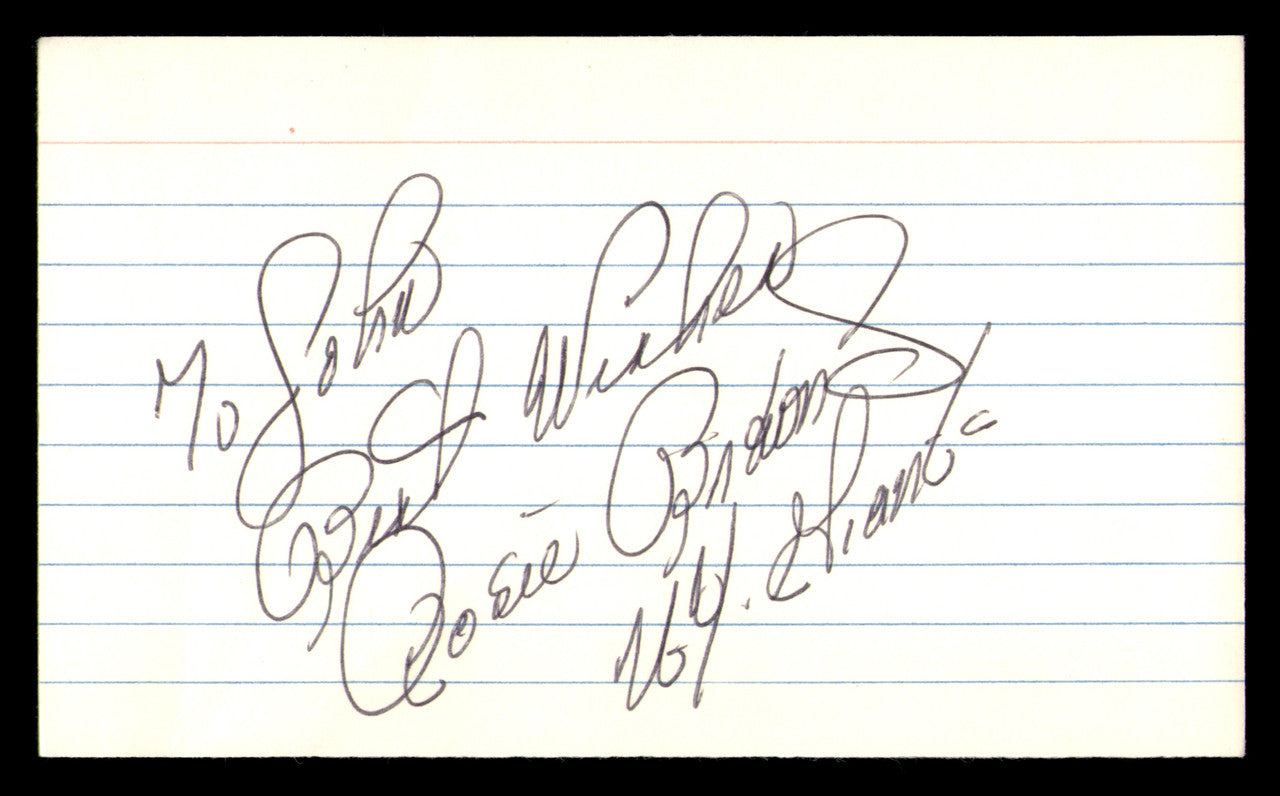 To John
Best Wishes
Rosie Brown
N.Y. Giants